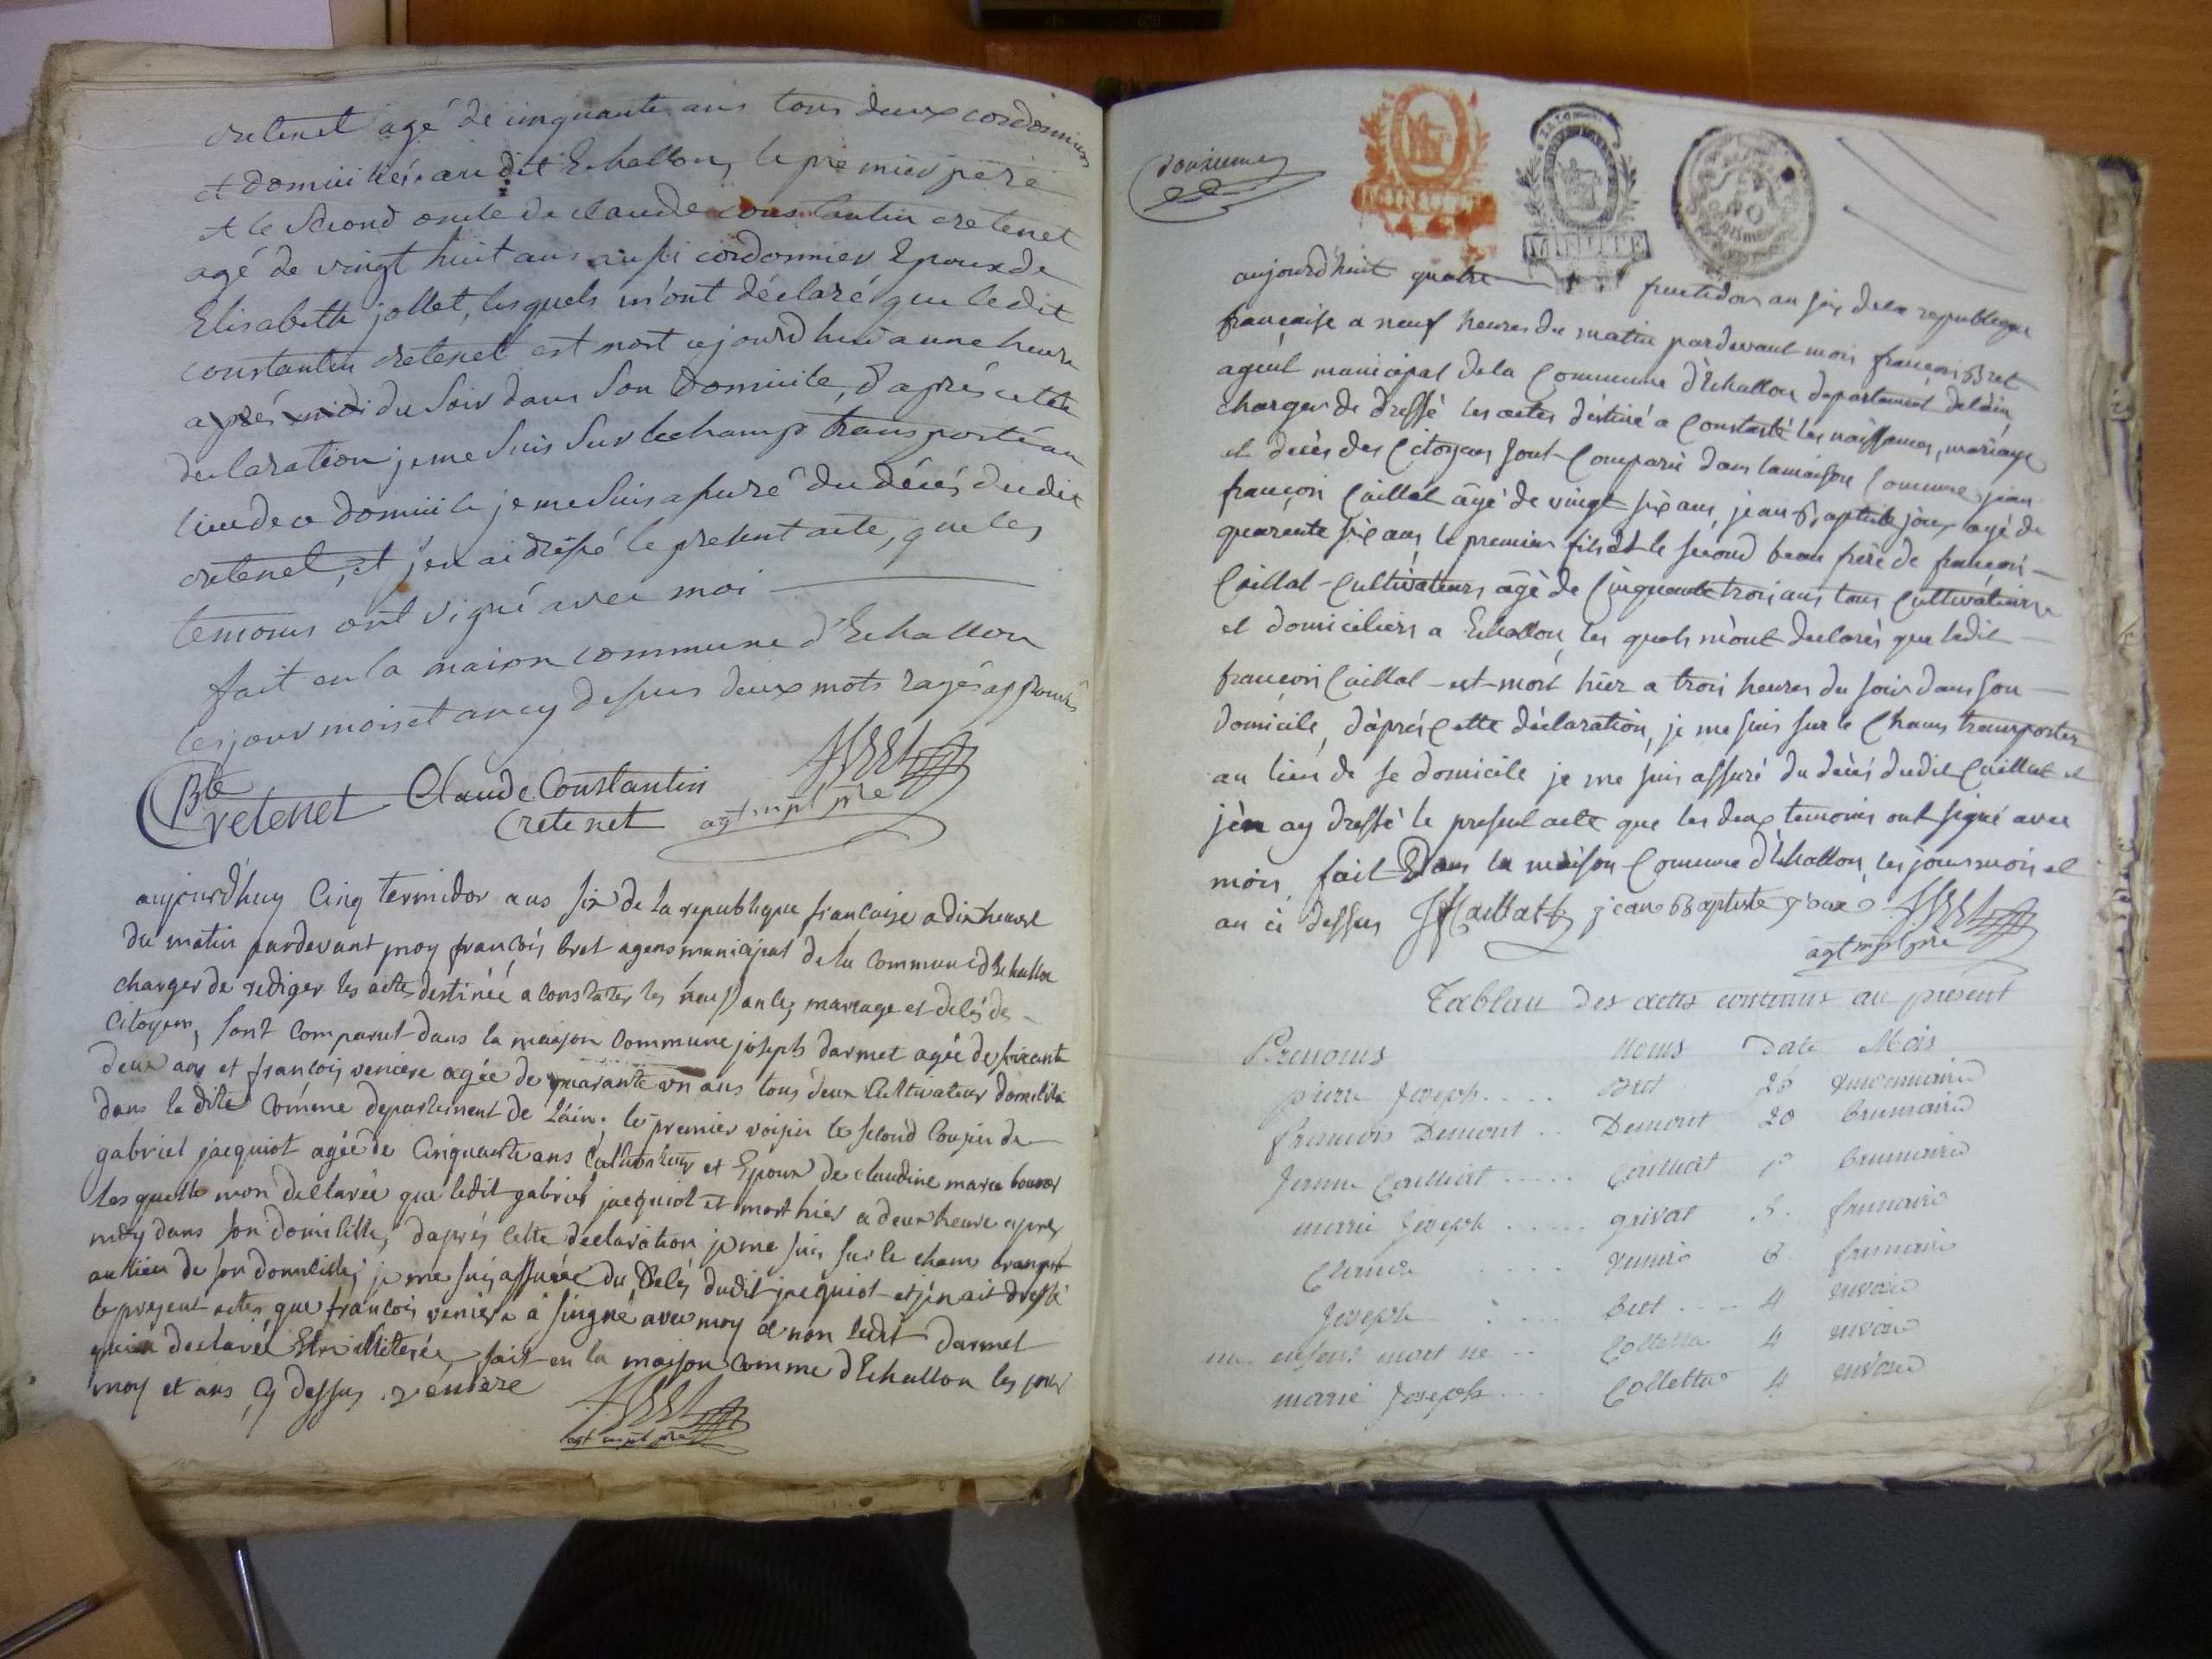 cretenet agé de cinquante ans tous deux cordonniers
et domiciliés audit Echallon, le premier pere
et le second oncle de claude constantin cretenet
agé de vingt huit ans aussi cordonnier Epoux de
Elisabeth jollet, lesquels m'ont déclaré que ledit
constantin cretenet est mort cejourd'hui a une heure
après midi du soir dans son domicile, d'après cette
declaration je me suis sur lechamp transporté au
lieu de ce domicile je me suis assuré du décés dudit
cretenet, et j'en ai dressé le present acte, que les
temoins ont signé avec moi
fait en la maison commune d'Echallon
les jour mois et an cy dessus deux mots rayés approuvés
Bte
Cretenet Claude Constantin
Cretenet agt mpl
aujourd'huy Cinq termidor ans six de la republique francaise a dix heure
du matin pardevant moy francois bret agens municipal de la commune d'Echallon
charger de rediger les acte destinée a constater les naissances, mariage et decés des
Citoyens, sont comparut dans la maison commune joseph darmet agée de soixante
deux ans et francois veniere agée de quarante un ans tous deux Cultivateur domicilié
dans la dite Comme departement de L'ain, le premier voisin le second Cousin de
gabriel jacquiot agée de Cinquante ans Cultivateur et Epoux de claudine marie
lesquelle mon declarée que ledit gabriel jacquiot et mort hier a deux heure apres
midy dans son domicille, daprés cette declaration je me suis sur le cham transport
au lieu de son domicille, je me suis assurée du Decés dudit jacquiot et j'en ait dressé
le present actes, que francois veniere a singné avec moy et non ledit darmet
qui a declarée Etre illiterée, fait en la maison comme d'Echallon les jour
moy et ans cy dessus . veniere
agt mpl
MINUTE
MINUTE
aujourd'huit quatre fructidor an six de la republique
française a neuf heures du matin pardevant moi françois Bret
agent municipal de la Commune d'Echallon departement delain,
charger de dressé les actes destiné a Constaté les naissances, mariage
et décés des Citoyens sont Comparû dans lamaison Commune jean
françois Caillat âgé de vingt six ans, jean Baptiste joux agé de
quarante six ans, le premier fils et le second beau frère de françois
Caillat Cultivateurs âgé de Cinquante trois ans tous Cultivateurs
et domiciliers a Echallon, les quels m'ont declarés que ledit
françois Caillat est mort hier a trois heures du soir dans son
domicile, d'après Cette déclaration, je me suis sur le Champ transporter
au lieu de se domicile je me suis assuré du décès dudit Caillat et
j'en ay dressé le present acte que les deux temoins ont signé avec
mois, fait Dans la maison Comune d'Echallon, les jours mois et
an ci dessus JfCaillat jean Baptiste joux
agt mpl
Tableau des actes contenus au present
Prenoms Noms Date Mois
pierre Joseph.... Bret 26 vendemiaire
francois Demont .. Demont 20 brumaire
Jeanne Cailliat ..... Cailliat brumaire
marie Joseph ..... grivat 3. frimaire
..... 6 frimaire
Joseph .... Bret .... 4 nivose
un enfant mort né .. Colletta 4 nivose
marie Joseph ... Colletta 4 nivose